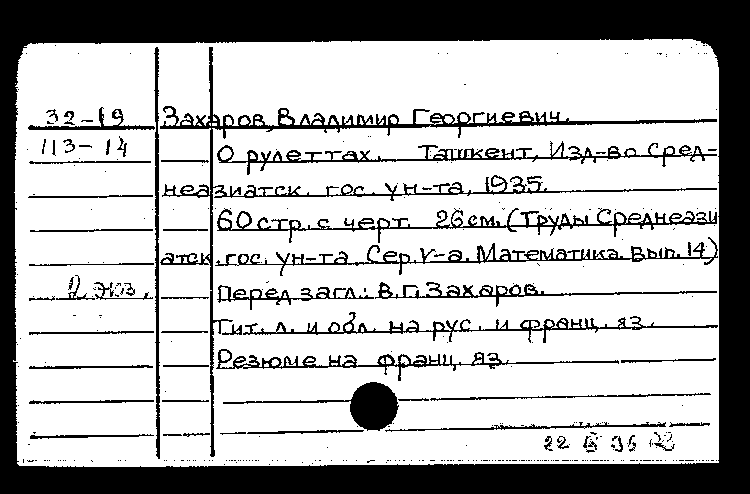 32-19 Захаров, Владимир Георгиевич.
113-14 О рулеттах. Ташкент, Изд-во Сред-
неазиатск. гос. ун-та, 1935.
60 стр. с черт. 26 см. (Труды Среднеази
атск. гос. ун-та. Сер. V-а. Математика. Вып. 14)
2 экз. Перед загл.: В.Г. Захаров.
Тит. л. и обл. на рус. и франц. яз.
Резюме на франц. яз.
22 36